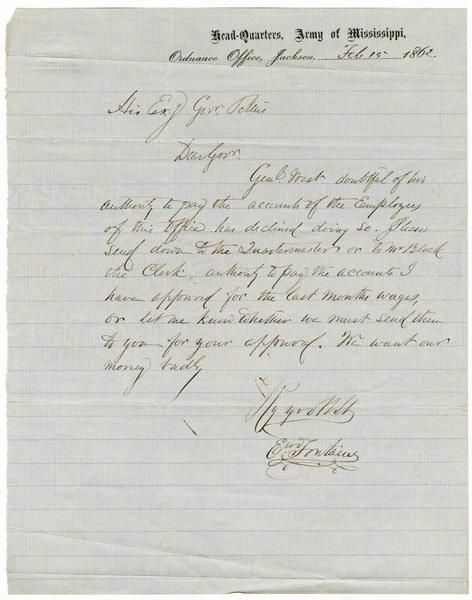 Head-Quarters, Army of Mississippi,
Ordnance Office, Jackson, Feb 15 1862.
His Exy Govr. Pettus
Dear Govr.
Genl West doubtful of his
authority to pay the accounts of the Employees
of this Office has declined doing so. Please
send down to the Quartermaster or to Mr Black
the Clerk, authority to pay the accounts I
have approved for the last months wages,
or let me know whether we must send them
to you for your approval. We want our
money badly
Fontaine